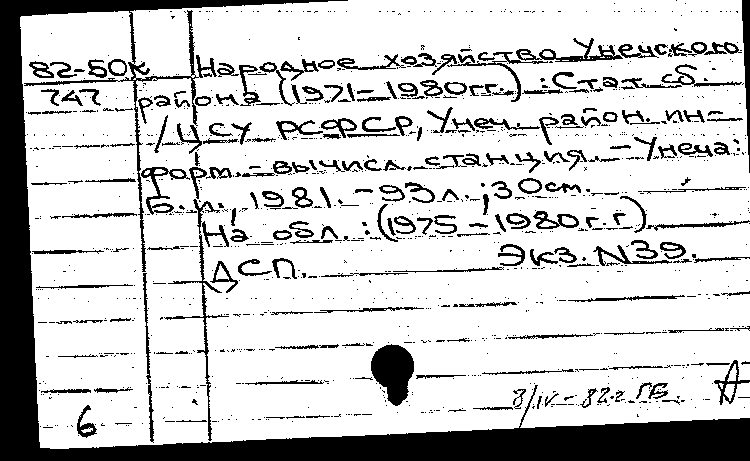 82-50к Народное хозяйство Унечского
747 района (1971-1980гг.) : Стат. сб.
/ЦСУ РСФСР, Унеч. район. ин-
форм.-вычисл. станция. - Унеча:
Б.и., 1981. - 93л.; 30см.
На обл.: (1975-1980г.г)
ДСП. Экз. N39.
8/IV-82г ГБ. А
6